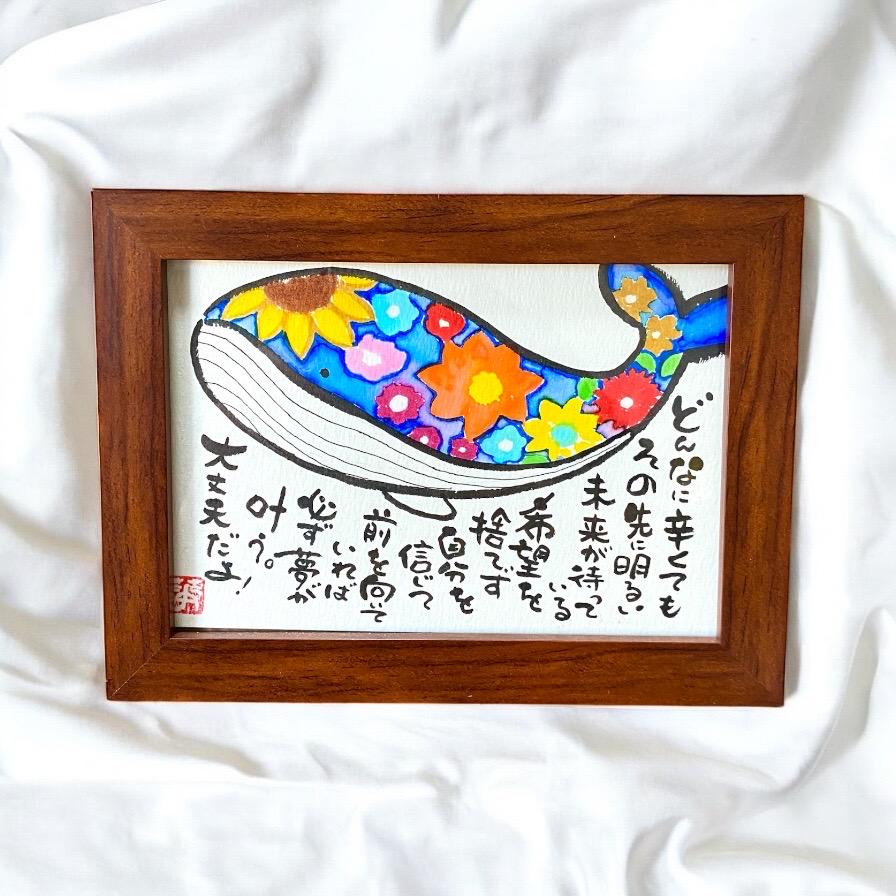 どんなに辛くても
その先に明るい
未来が待って
いる
希望を
捨てず
自分を
信じて
前を向いて
いれば
必ず夢が
叶う。
大丈夫だよ!